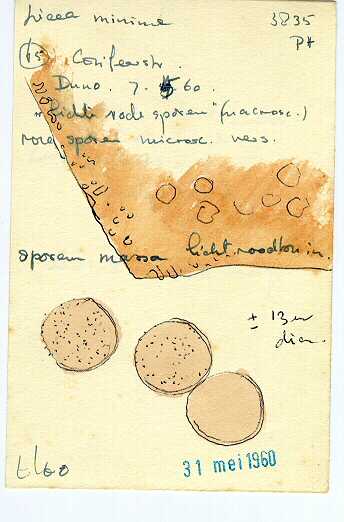 Licea minima 3235
P+
15 Coniferstr.
Duno. 7. 5 60.
"Lichte rode sporen" (macrosc.)
roze sporen microsc. vers.
sporen massa licht roodbruin.
± 13 µ
diam.
31 mei 1960